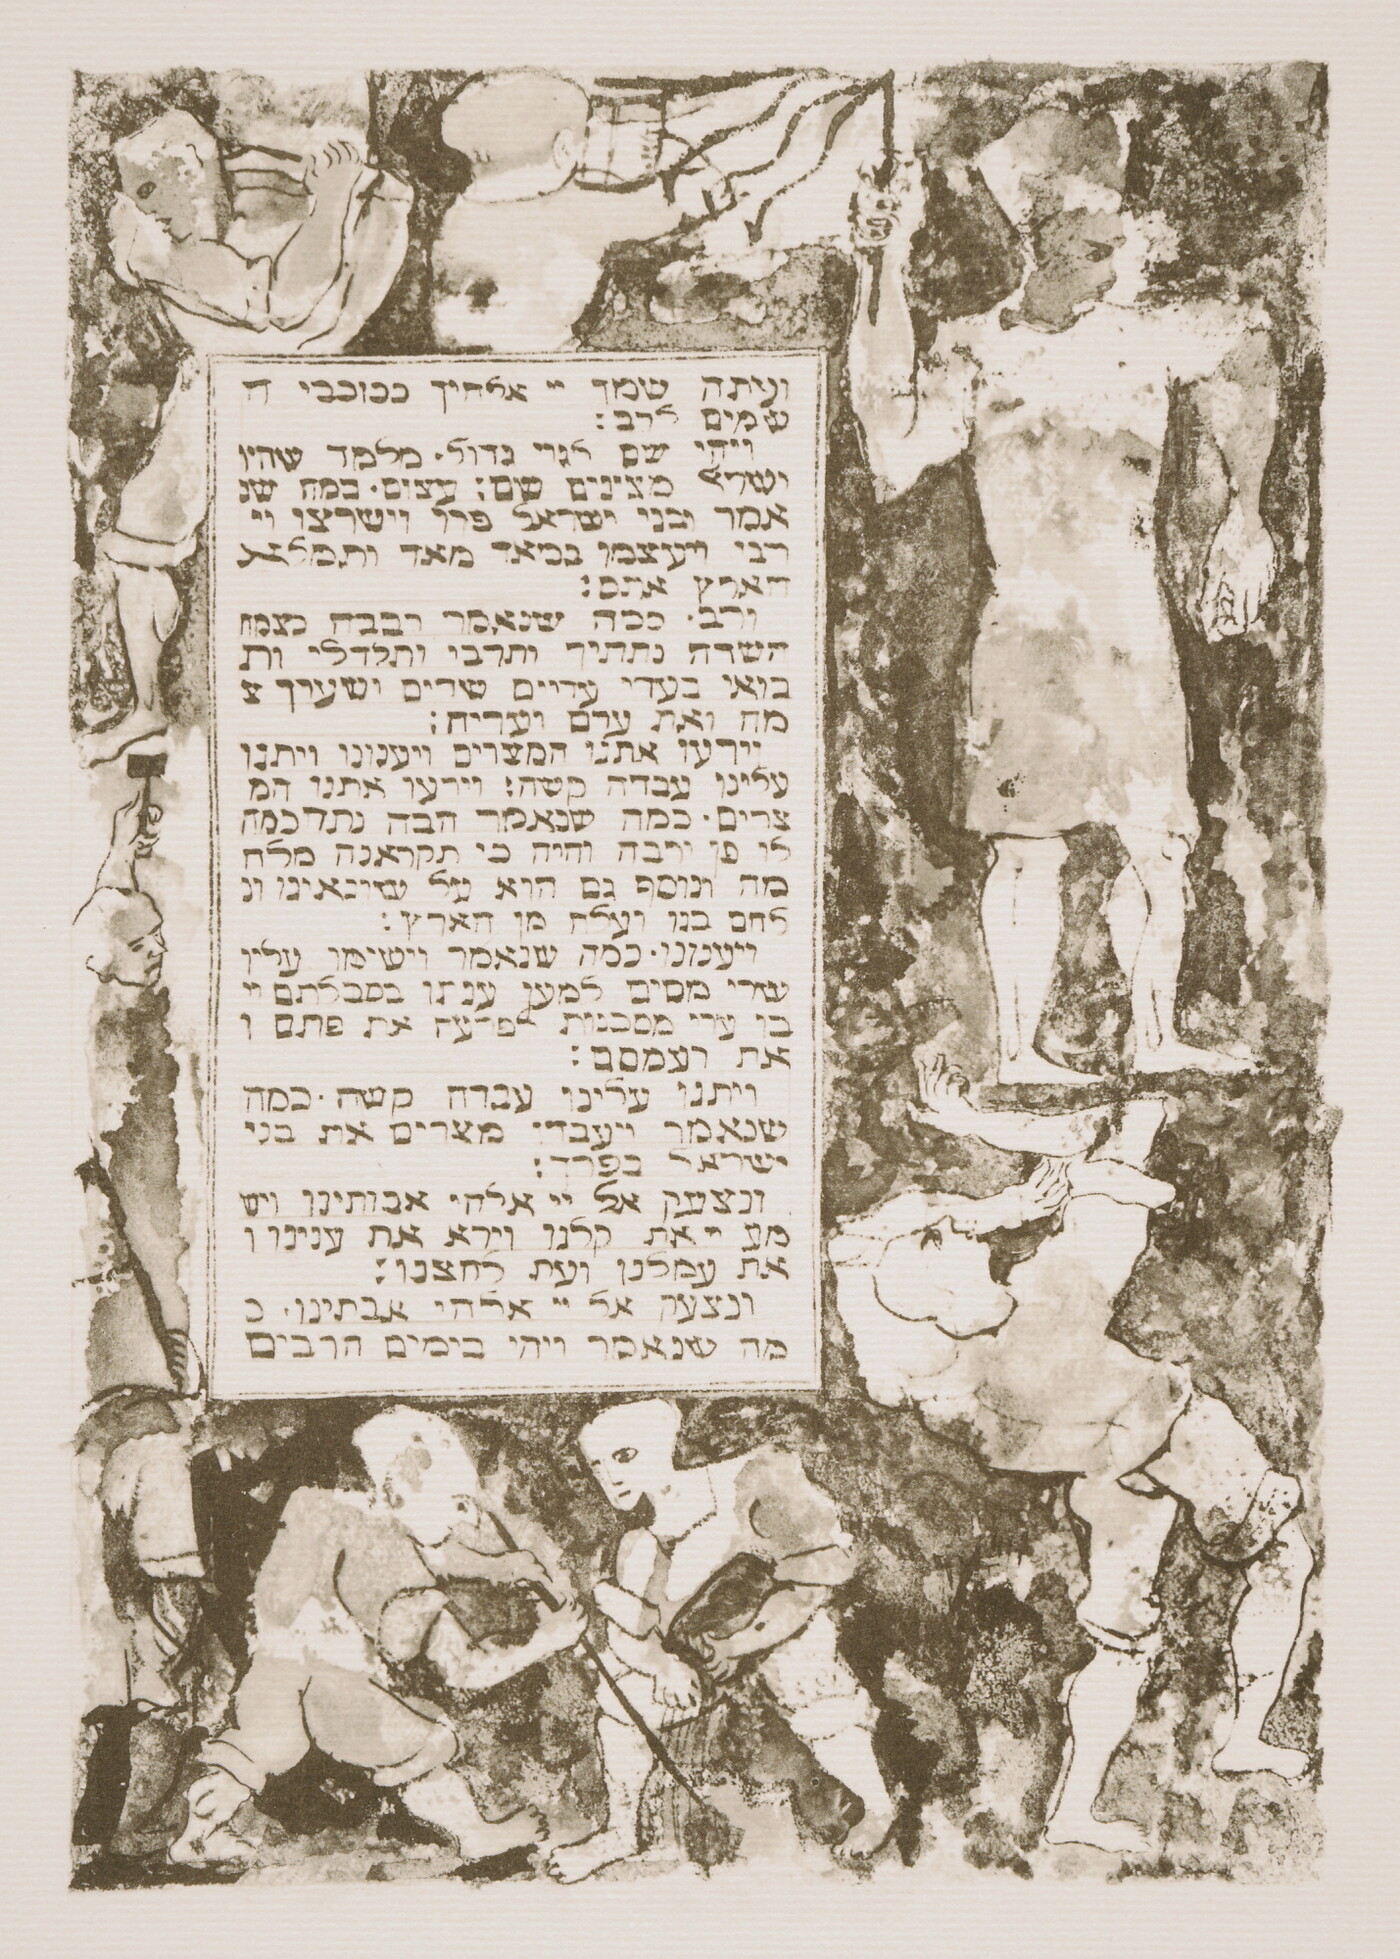 ועתה שמך יי אלהיך ככוכבי ה
שמים לרב:
ויהי שם לגוי גדול. מלמד שהיו
ישראל מצינים שם: עצום. כמה שנ
אמר ובני ישראל פרו וישרצו וי
רבו ויעצמו במאד מאד ותמלא
הארץ אתם:
ורב. ככה שנאמר רבבה כצמח
השדה נתתיך ותרבי ותגדלי ות
בואי בעדי עדיים שדים ושערך צ
מח ואת ערם ועריה:
וירעו אתנו המצרים ויענונו ויתנו
עלינו עבדה קשה: וירעו אתנו המ
צרים. כמה שנאמר הבה נתחכמה
לו פן ירבה והיה כי תקראנה מלח
מה ונוסף גם הוא על שונאינו ונ
לחם בנו ועלה מן הארץ:
ויענונו. כמה שנאמר וישימו עליו
שרי מסים למען ענתו בסבלתם וי
בן ערי מסכנות לפרעה את פתם ו
את רעמסס:
ויתנו עלינו עבדה קשה. כמה
שנאמר ויעבדו מצרים את בני
ישראל בפרך:
ונצעק אל יי אלהי אבותינו ויש
מע יי את קלנו וירא את ענינו ו
את עמלנו ואת לחצנו:
ונצעק אל יי אלהי אבתינו. כ
מה שנאמר ויהי בימים הרבים